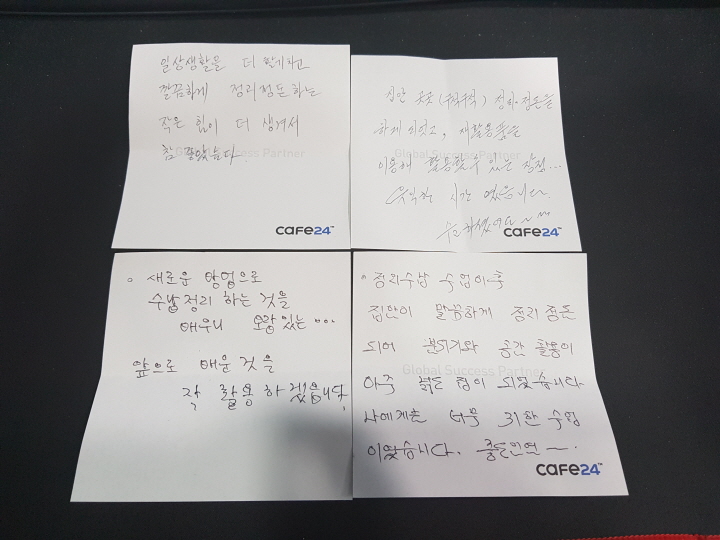 일상생활을 더 밝게하고
깔끔하게 정리정돈하는
작은 힘이 더 생겨서
참 좋았습니다.
Global Success Partner
cafe24
집안 곳곳 (구석구석) 정리정돈을
하게 되었고, 재활용품을
이용해 활용할 수 있는 장점...
유익한 시간 였습니다~
수고하셨어요~
Global Success Partner
cafe24
○ 새로운 방법으로
수납정리 하는 것을
배우니 보람있는 ...
앞으로 배운 것을
잘 활용하겠습니다.
○ 정리수납 수업이후
집안이 말끔하게 정리정돈
되어 분위기와 공간 활용이
아주 넓은 집이 되었습니다
나에게는 너무 귀한 수업
이었습니다. 좋은인연~.
Global Success Partner
cafe24